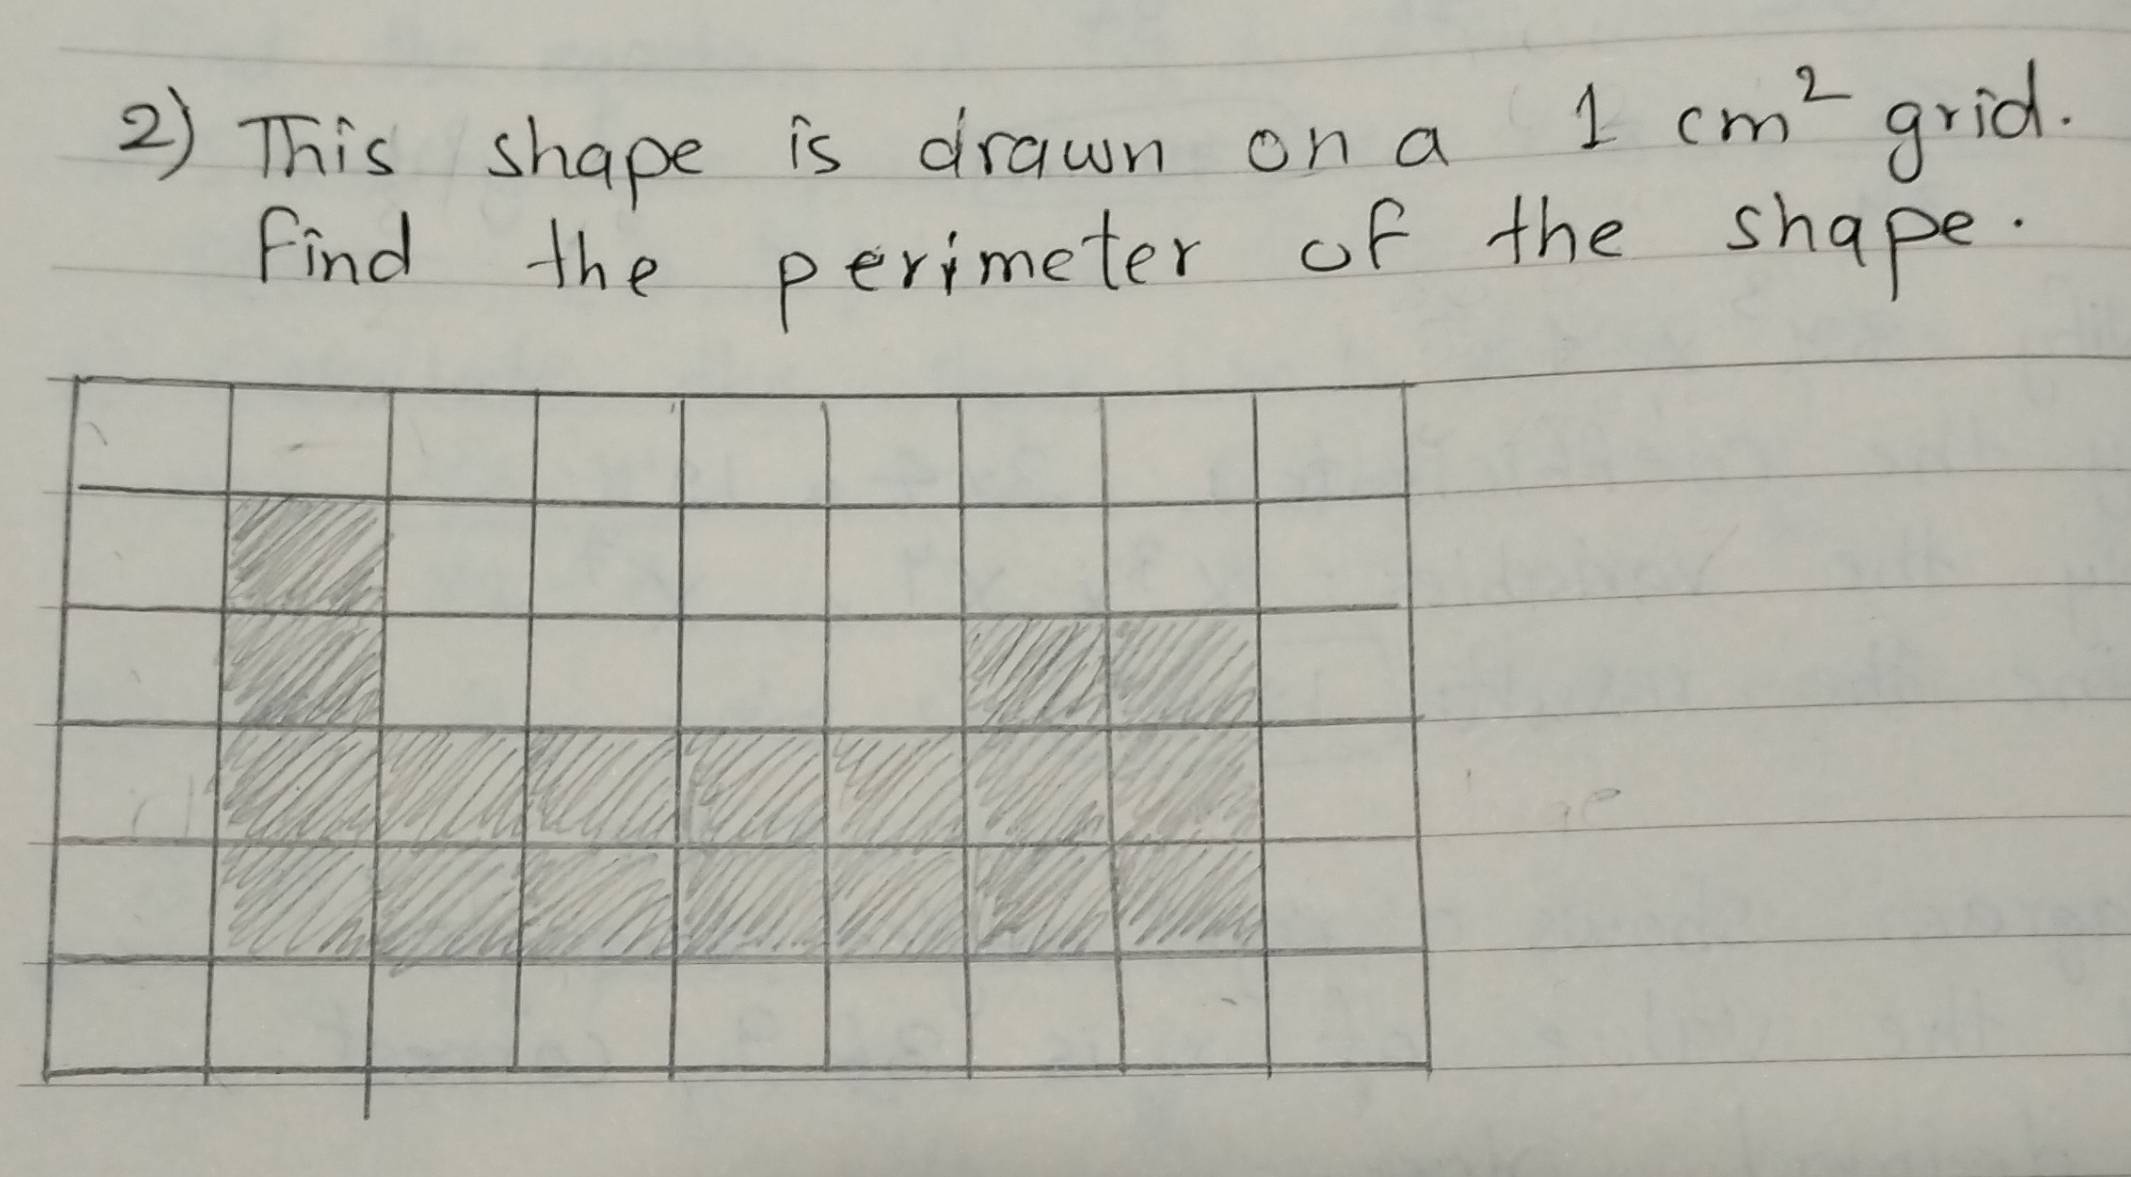 2) This shape is drawn on a 1 cm² grid.
Find the perimeter of the shape.